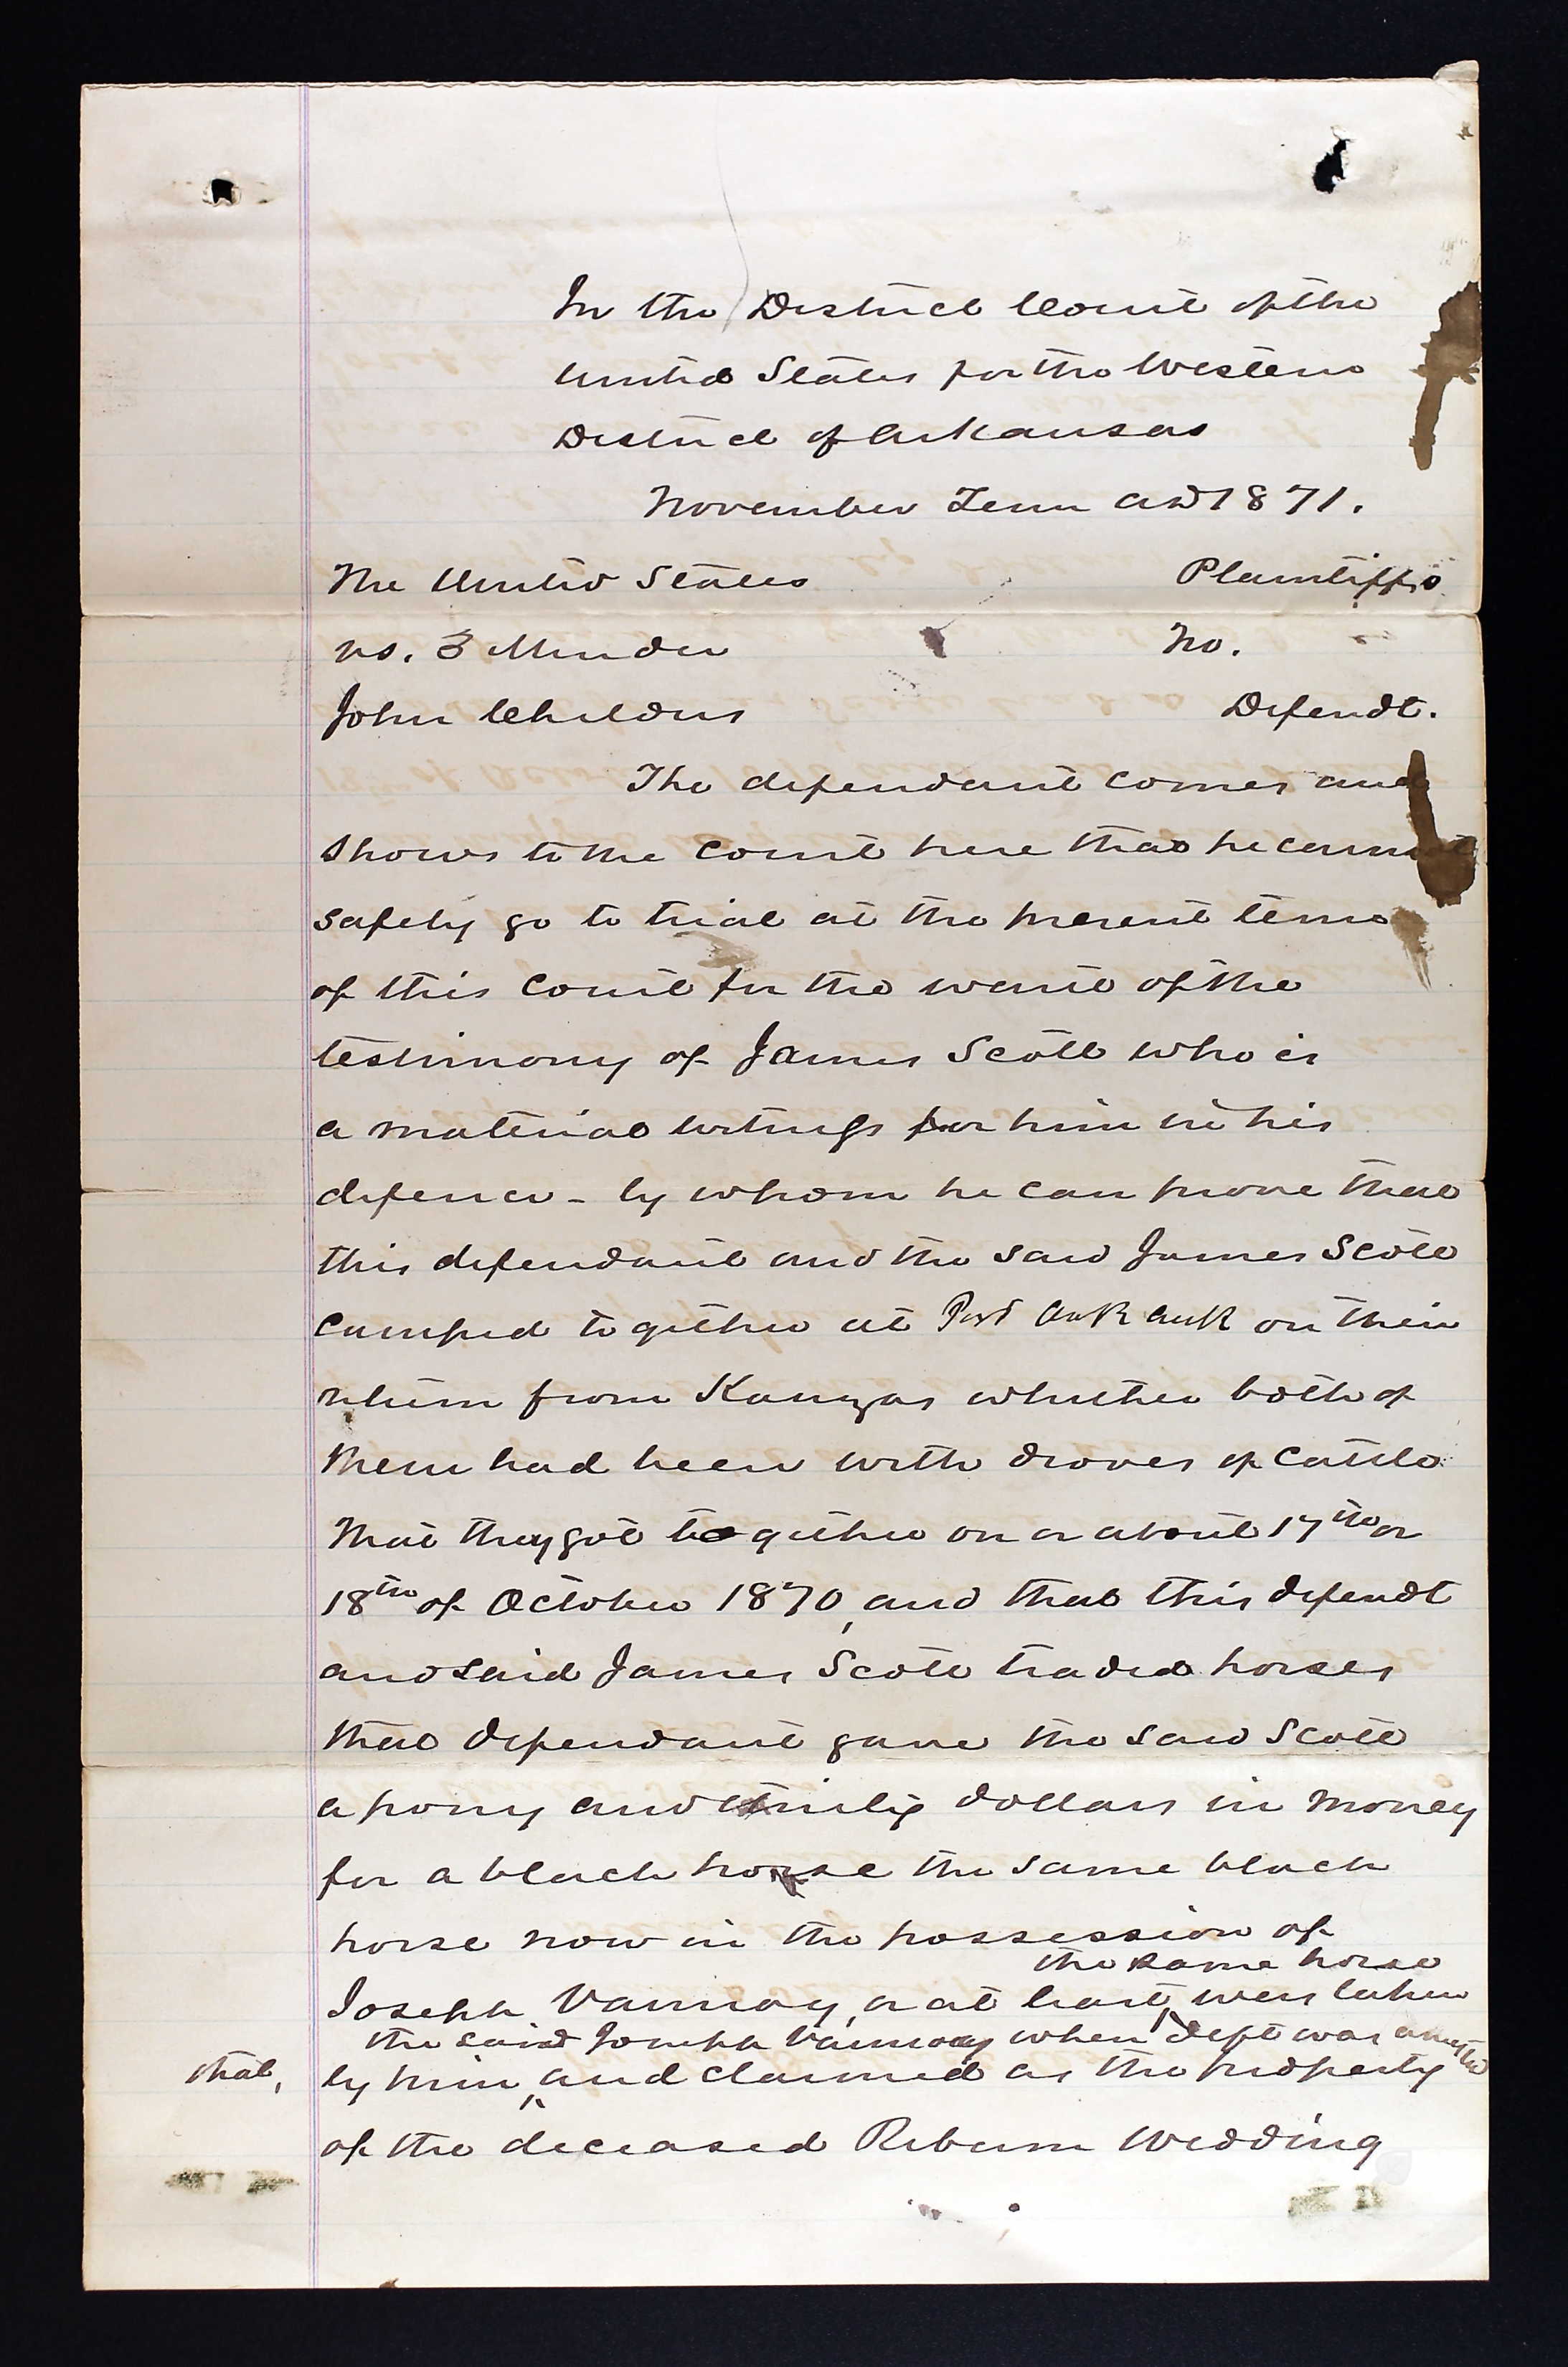 In the District Court of the
United States for the Western
District of Arkansas
November Term AD 1871.
The United States Plaintiffs
vs. } Murder No.
John Childers Defendt.
The defendant comes and
shows to the court here that he cannot
safely go to trial at the present term
of this court for the want of the
testimony of James Scott who is
a material witness for him in his
defence - by whom he can prove that
this defendant and the said James Scott
camped together at on their
return from Kanzas whither both of
them had been with droves of cattle
that they got together on or about 17th or
18th of October 1870, and that this defendt
and said James Scott traded horses
that defendant gave the said Scott
a pony and thirty dollars in money
for a black horse the same black
horse now in the possession of
the same horse
Joseph Vannoy, or at least were taken
the said Joseph Vannoy when deft was arrested
that, by him, and claimed as the property
of the deceased Reburn Wedding